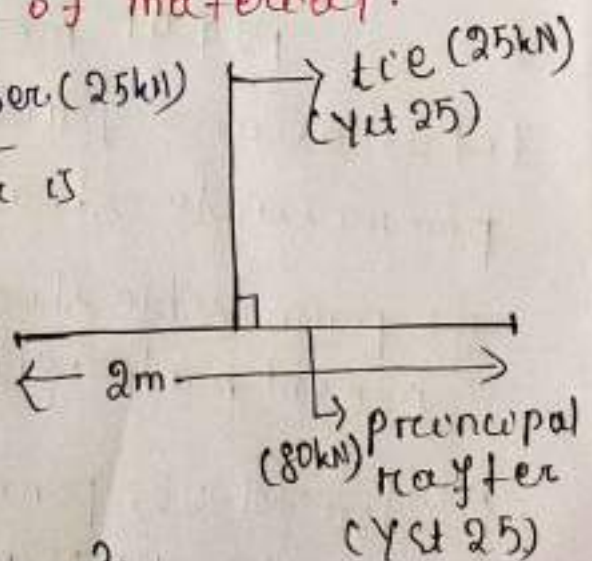 of material.
er (25kN)
tie (25kN)
(Yst 25)
is
2m
(80kN) principal
rafter
(Yst 25)
2